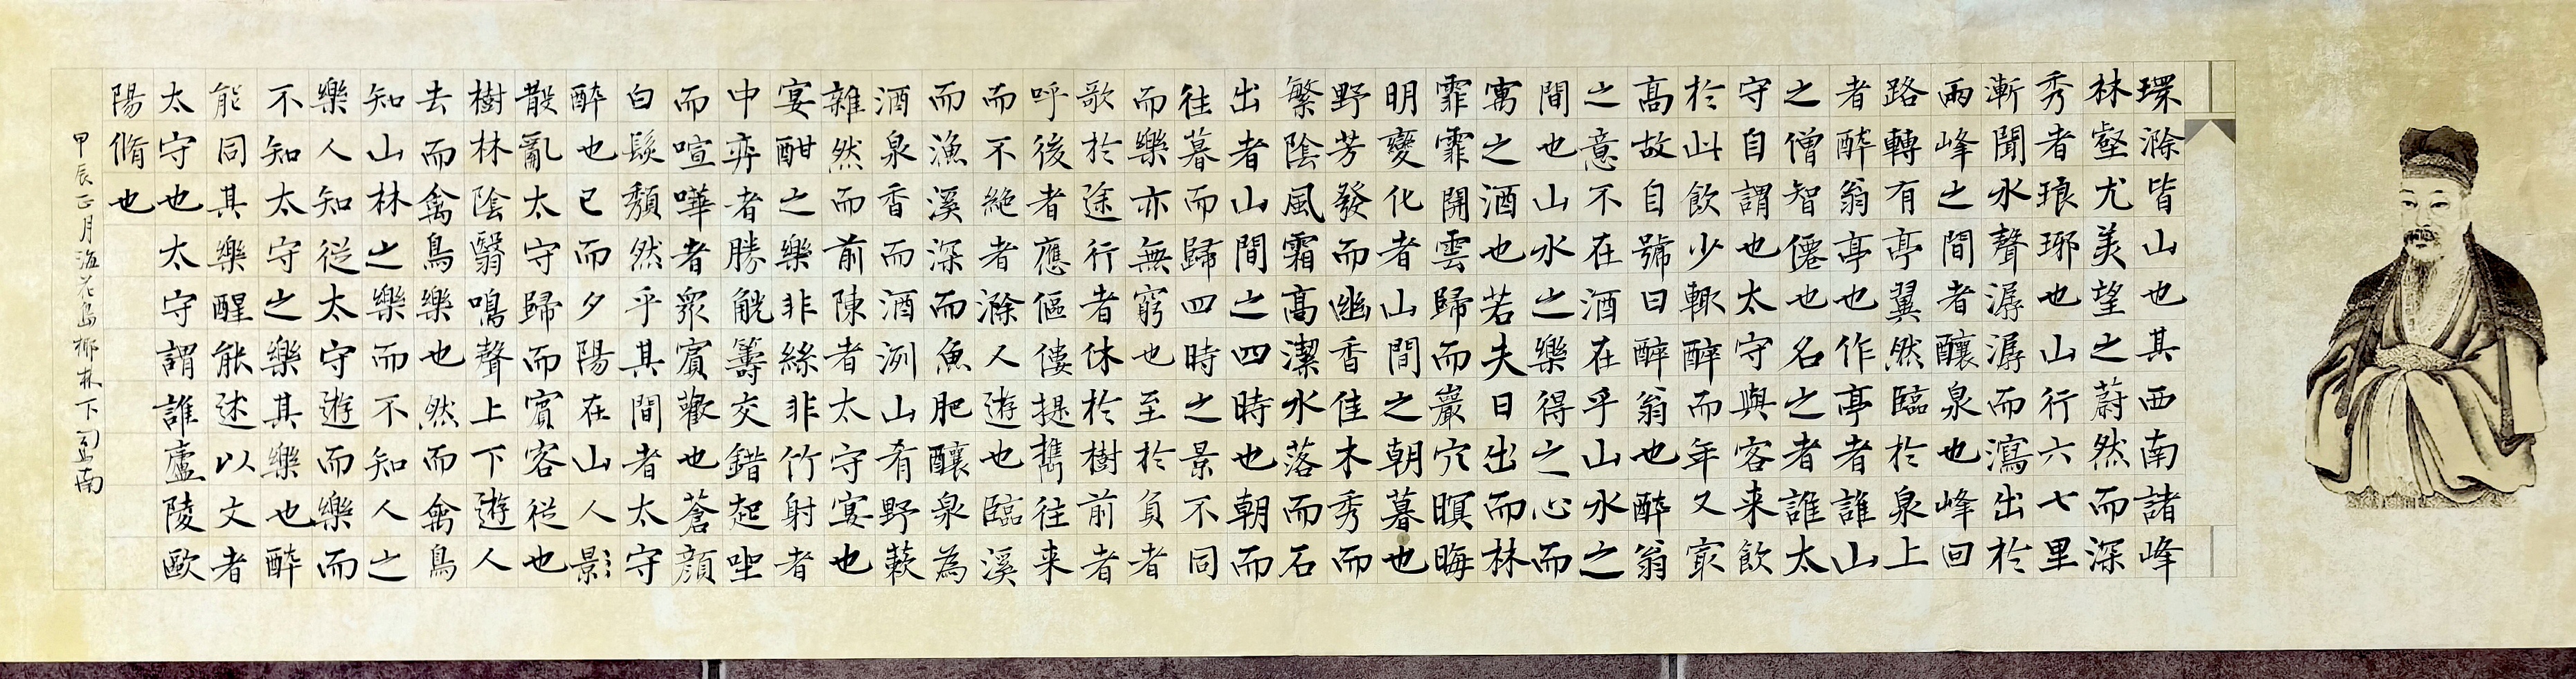 環滁皆山也其西南諸峰
林壑尤美望之蔚然而深
秀者琅琊也山行六七里
漸聞水聲潺潺而瀉出於
兩峰之間者釀泉也峰回
路轉有亭翼然臨於泉上
者醉翁亭也作亭者誰山
之僧智僊也名之者誰太
守自謂也太守與客来飲
於此飲少輒醉而年又冣
高故自號曰醉翁也醉翁
之意不在酒在乎山水之
間也山水之樂得之心而
寓之酒也若夫日出而林
霏霏開雲歸而巖穴暝晦
明變化者山間之朝暮也
野芳發而幽香佳木秀而
繁陰風霜高潔水落而石
出者山間之四時也朝而
往暮而歸四時之景不同
而樂亦無窮也至於負者
歌於途行者休於樹前者
呼後者應傴僂提攜往来
而不絶者滁人遊也臨溪
而漁溪深而魚肥釀泉為
酒泉香而酒洌山肴野蔌
雜然而前陳者太守宴也
宴酣之樂非絲非竹射者
中弈者勝觥籌交錯起坐
而喧嘩者眾賓歡也蒼顏
白髮頹然乎其間者太守
醉也已而夕陽在山人影
散亂太守歸而賓客從也
樹林陰翳鳴聲上下遊人
去而禽鳥樂也然而禽鳥
知山林之樂而不知人之
樂人知從太守遊而樂而
不知太守之樂其樂也醉
能同其樂醒能述以文者
太守也太守謂誰廬陵歐
陽脩也
甲辰正月海花島椰林下司馬南